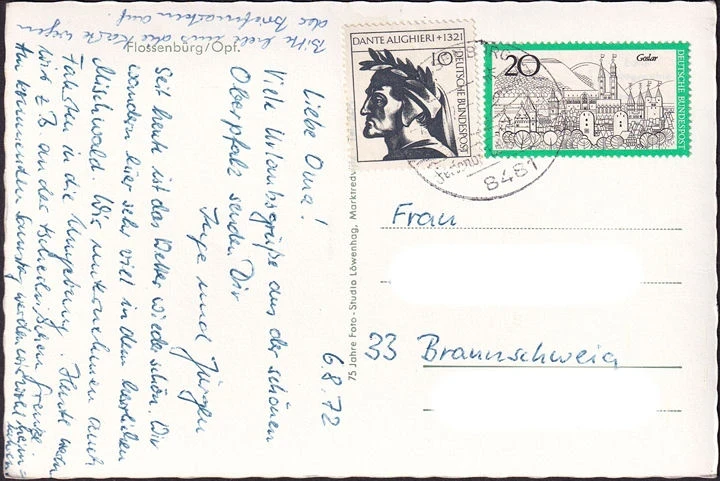 Flossenbürg/Opf.
Bitte hebt uns die Karte wegen
der Briefmarken auf.
6.8.72
Liebe Oma!
Viele Urlaubsgrüße aus der schönen
Oberpfalz senden Dir
Inge und Jürgen
Seit heute ist das Wetter wieder schön. Wir
wandern hier sehr viel in dem herrlichen
Mischwald. Wir unternehmen auch
Fahrten in die Umgebung. Heute waren
wir z.B. an der tschechischen Grenze.
Am kommenden Samstag werden wir wohl heim-
75 Jahre Foto-Studio Löwenhag, Marktredw
DANTE ALIGHIERI +1321
10
DEUTSCHE BUNDESPOST
20
Goslar
DEUTSCHE BUNDESPOST
8481
Frau
33 Braunschweig